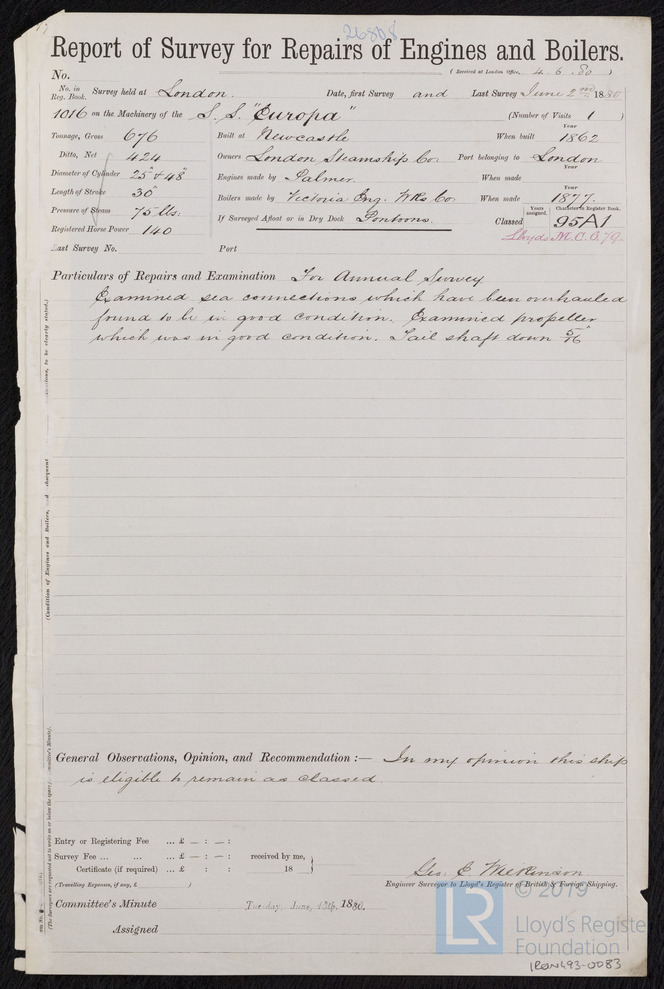 26808
Report of Survey for Repairs of Engines and Boilers.
No. (Received at London Office, 4.6.80)
No. in Reg. Book. Survey held at London. Date, first Survey and Last Survey June 2nd 1880
1016 on the Machinery of the S.S. "Europa" (Number of Visits 1 )
Tonnage, Gross 676 Built at Newcastle When built Year 1862
Ditto, Net 424 Owners London Steamship Co. Port belonging to London
Diameter of Cylinder 25" & 48" Engines made by Palmer When made Year
Length of Stroke 30" Boilers made by Victoria Eng. Wks Co. When made Year 1877
Pressure of Steam 75 lbs. If Surveyed Afloat or in Dry Dock Pontoons. Classed Years assigned. Character in Register Book. 95A1
Registered Horse Power 140 Lloyds M.C. 6,79.
Last Survey No. Port
Particulars of Repairs and Examination For Annual Survey
Examined sea connections which have been overhauled
found to be in good condition. Examined propeller
which was in good condition. Tail shaft down 5/16"
(Condition of Engines and Boilers, and subsequent to be clearly stated.)
General Observations, Opinion, and Recommendation :— In my opinion this ship
is eligible to remain as classed
(The Surveyors are requested not to write on or below the space Committee's Minute).
Entry or Registering Fee ... £ — : — :
Survey Fee ... ... ... £ — : — : received by me,
Certificate (if required) ... £ : — : 18
(Travelling Expenses, if any, £ )
Geo. E. Wilkinson
Engineer Surveyor to Lloyd's Register of British & Foreign Shipping.
Committee's Minute Tuesday, June, 15th, 1880.
Assigned
© 2019
LR Lloyd's Register
Foundation
IRON493-0083